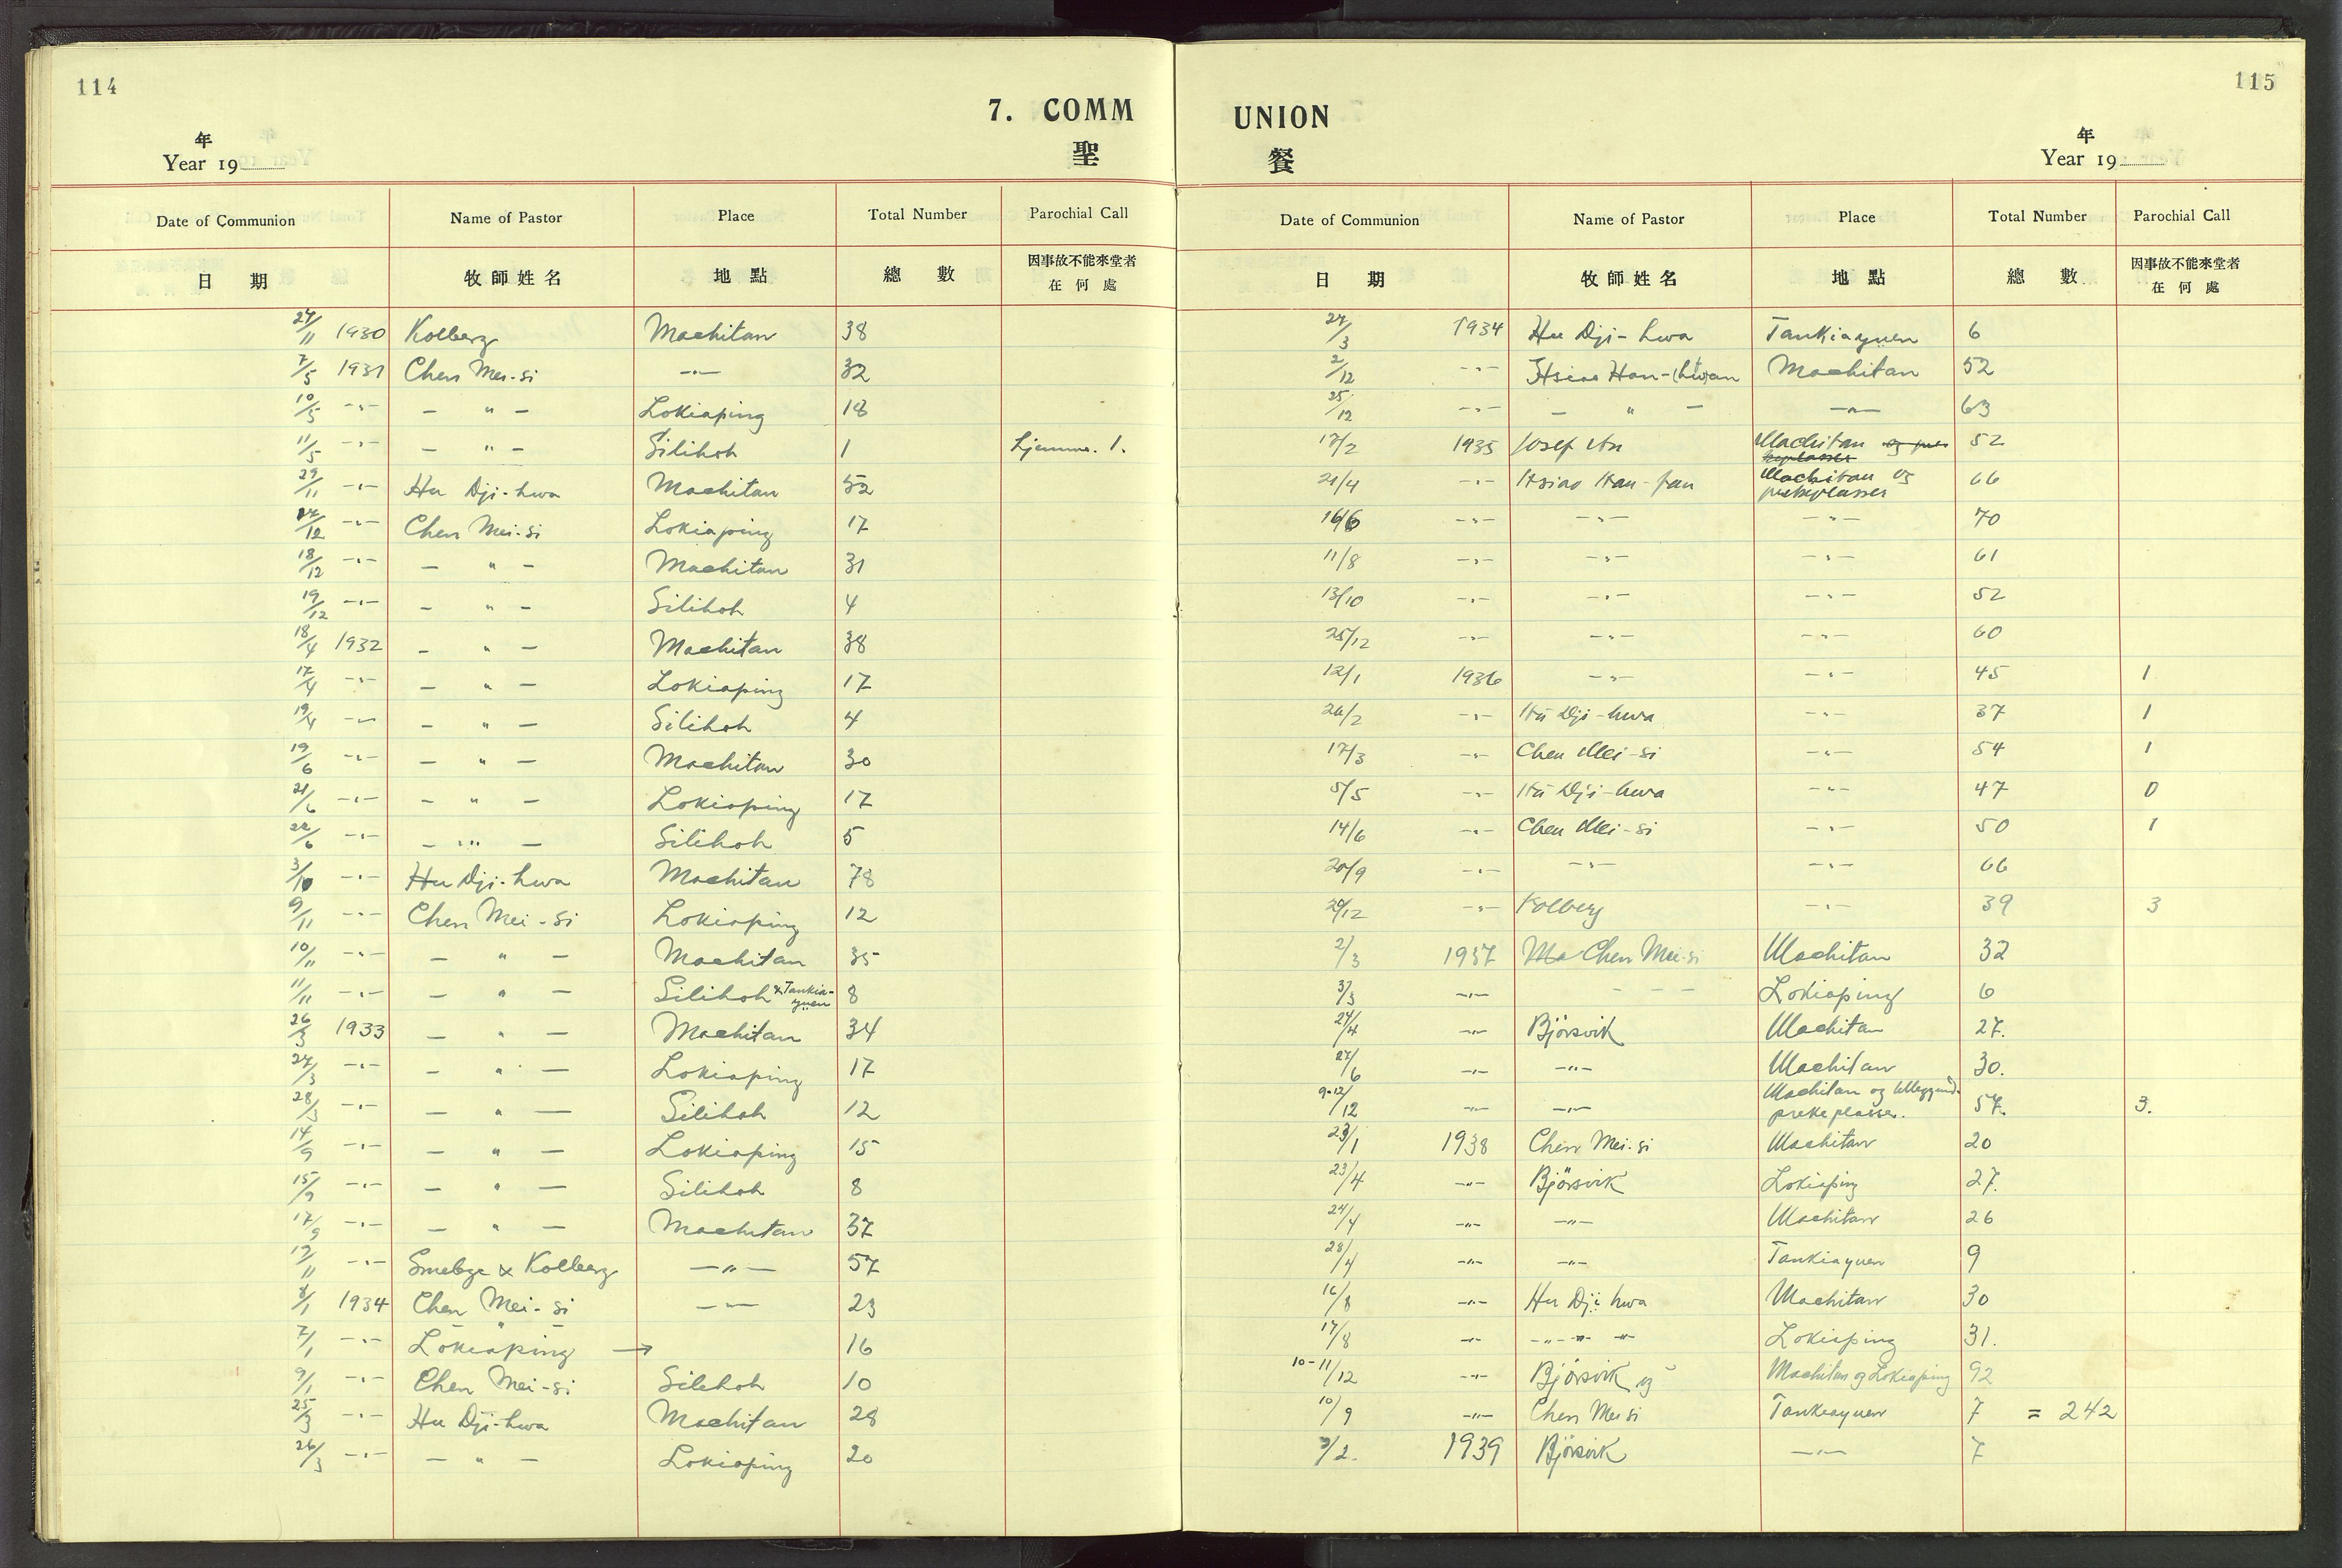 114
7. COMM
年
Year 19
聖
Date of Communion Name of Pastor Place Total Number Parochial Call
日 期 牧師姓名 地點 總數 因事故不能來堂者
在何處
24/11 1930 Kolberg Machitan 38
7/5 1931 Chen Mei-si -"- 32
10/5 -"- - " - Lokiaping 18
11/5 -"- - " - Silihoh 1 Hjemme. 1.
29/11 -"- Hu Dji-hwa Machitan 52
12 -"- Chen Mei-si Lokiaping 17
18/12 -"- - " - Machitan 31
19/12 -"- - " - Silihoh 4
18/4 1932 - " - Machitan 38
17/4 -"- - " - Lokiaping 17
19/4 -"- - " - Silihoh 4
19/6 -"- - " - Machitan 30
21/6 -"- - " - Lokiaping 17
22/6 -"- - " - Silihoh 5
3/10 -"- Hu Dji-hwa Machitan 78
9/11 -"- Chen Mei-si Lokiaping 12
10/11 -"- - " - Machitan 35
11/11 -"- - " - Silihoh & Tankia-yuen 8
26/3 1933 - " - Machitan 34
27/3 -"- - " - Lokiaping 17
28/3 -"- - " - Silihoh 12
14/9 -"- - " - Lokiaping 15
15/9 -"- - " - Silihoh 8
17/9 -"- - " - Machitan 37
12/11 -"- Smebye & Kolberg -"- 57
1934 Chen Mei-si -"- 23
7/1 -"- - " - Lokiaping → 16
9/1 -"- Chen Mei-si Silihoh 10
25/3 -"- Hu Dji-hwa Machitan 28
26/3 -"- - " - Lokiaping 20
115
UNION
年
Year 19
餐
Date of Communion Name of Pastor Place Total Number Parochial Call
日 期 牧師姓名 地點 總數 因事故不能來堂者
在何處
27/3 1934 Hu Dji-hwa Tankiayuen 6
2/12 -"- Hsiao Han- Machitan 52
25/12 -"- - " - -"- 63
17/2 1935 Josef Machitan og 52
21/4 -"- Hsiao Han-fan Machitan og
prekeplasser 66
16/6 -"- -"- -"- 70
11/8 -"- -"- -"- 61
13/10 -"- -"- -"- 52
25/12 -"- -"- -"- 60
12/1 1936 -"- -"- 45 1
26/2 -"- Hu Dji-hwa -"- 37 1
17/3 -"- Chen Mei-si -"- 54 1
5/5 -"- Hu Dji-hwa -"- 47 0
14/6 -"- Chen Mei-si -"- 50 1
20/9 -"- -"- -"- 66
12 -"- Kolberg -"- 39 3
2/3 1937 Chen Mei-si Machitan 32
3/3 -"- - - - Lokiaping 6
24/4 -"- Björsvik Machitan 27.
27/6 -"- -"- Machitan 30.
9-12/12 -"- -"- Machitan og
prekeplasser. 57. 3.
23/1 1938 Chen Mei-si Machitan 20
23/4 -"- Björsvik Lokiaping 27.
24/4 -"- -"- Machitan 26
28/4 -"- -"- Tankiayuen 9
16/8 -"- Hu Dji hwa Machitan 30
17/8 -"- -"- -"- Lokiaping 31.
10-11/12 -"- Björsvik og Machitan og Lokiaping 92
10/9 -"- Chen Mei si Tankiayuen 7 = 242
2. 1939 Björsvik -"- 7